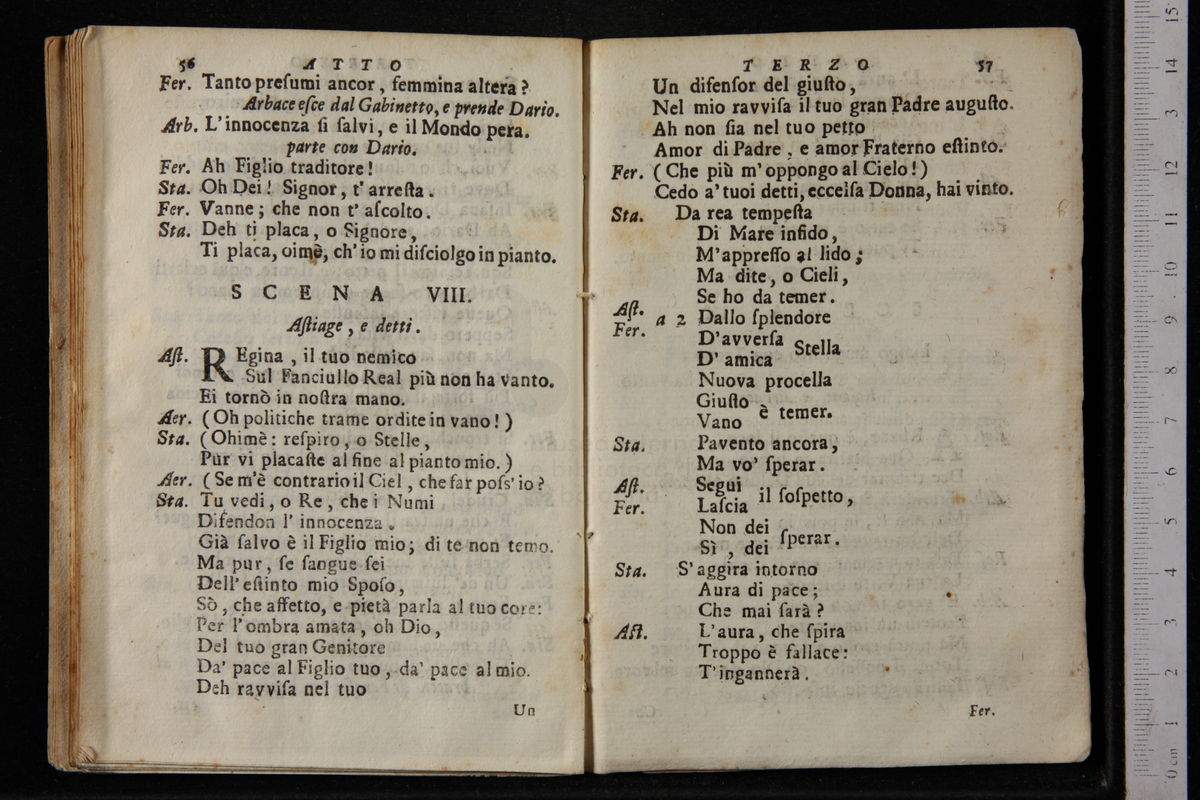 56 ATTO
Fer. Tanto preſumi ancor, femmina altera?
Arbace eſce dal Gabinetto, e prende Dario.
Arb. L'innocenza ſi ſalvi, e il Mondo pera.
parte con Dario.
Fer. Ah Figlio traditore!
Sta. Oh Dei! Signor, t'arreſta.
Fer. Vanne; che non t'aſcolto.
Sta. Deh ti placa, o Signore,
Ti placa, oimè, ch'io mi diſciolgo in pianto.
SCENA VIII.
Aſtiage, e detti.
Aſt. REgina, il tuo nemico
Sul Fanciullo Real più non ha vanto.
Ei tornò in noſtra mano.
Aer. (Oh politiche trame ordite in vano!)
Sta. (Ohimè: reſpiro, o Stelle,
Pur vi placaſte al fine al pianto mio.)
Aer. (Se m'è contrario il Ciel, che far poſs'io?
Sta. Tu vedi, o Re, che i Numi
Difendon l'innocenza.
Già ſalvo è il Figlio mio; di te non temo.
Ma pur, ſe ſangue ſei
Dell'eſtinto mio Spoſo,
Sò, che affetto, e pietà parla al tuo core:
Per l'ombra amata, oh Dio,
Del tuo gran Genitore
Da' pace al Figlio tuo, da' pace al mio.
Deh ravviſa nel tuo
Un
TERZO 57
Un difenſor del giuſto,
Nel mio ravviſa il tuo gran Padre auguſto.
Ah non ſia nel tuo petto
Amor di Padre, e amor Fraterno eſtinto.
Fer. (Che più m'oppongo al Cielo!)
Cedo a'tuoi detti, ecceiſa Donna, hai vinto.
Sta. Da rea tempeſta
Di Mare infido,
M'appreſſo al lido;
Ma dite, o Cieli,
Se ho da temer.
Aſt.
Fer. a 2 Dallo ſplendore
D'avverſa
D'amica Stella
Nuova procella
Giuſto
Vano è temer.
Sta. Pavento ancora,
Ma vo' ſperar.
Aſt. Segui
Fer. Laſcia il ſoſpetto,
Non dei
Sì, dei ſperar.
Sta. S'aggira intorno
Aura di pace;
Che mai ſarà?
Aſt. L'aura, che ſpira
Troppo è fallace:
T'ingannerà.
Fer.